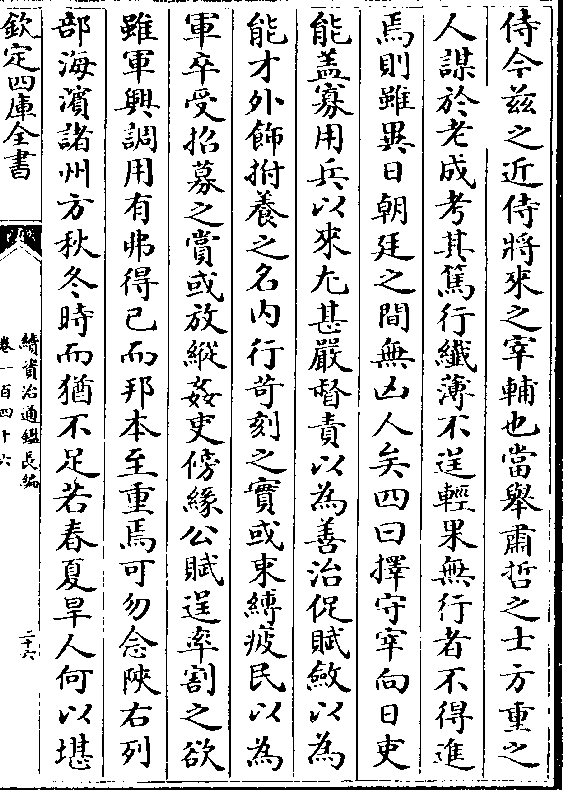 侍今兹之近侍將來之宰輔也當舉肅哲之士方重之
人謀於老成考其篤行纎薄不逞輕果無行者不得進
焉則雖異日朝廷之間無凶人矣四曰擇守宰向日吏
能盖寡用兵以來尤甚嚴督責以為善治促賦斂以為
能才外飾拊養之名内行苛刻之實或束縛疲民以為
軍卒受招募之賞或放縱姦吏傍緣公賦逞率割之欲
雖軍興調用有弗得已而邦本至重焉可勿念陜右列
部海濱諸州方秋冬時而猶不足若春夏旱人何以堪
欽定四庫全書
續資治通鑑長編
卷一百四十六
二十六